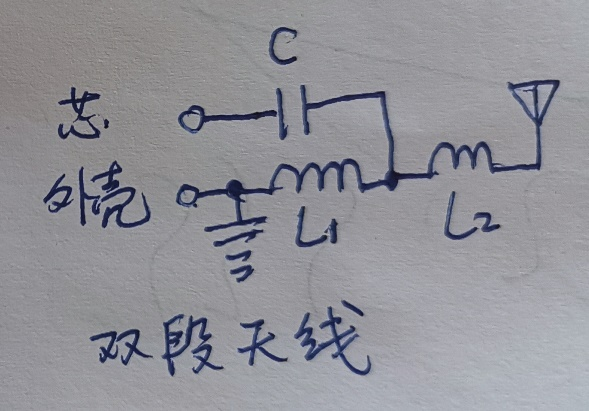 C
芯
外壳
L1
L2
双段天线